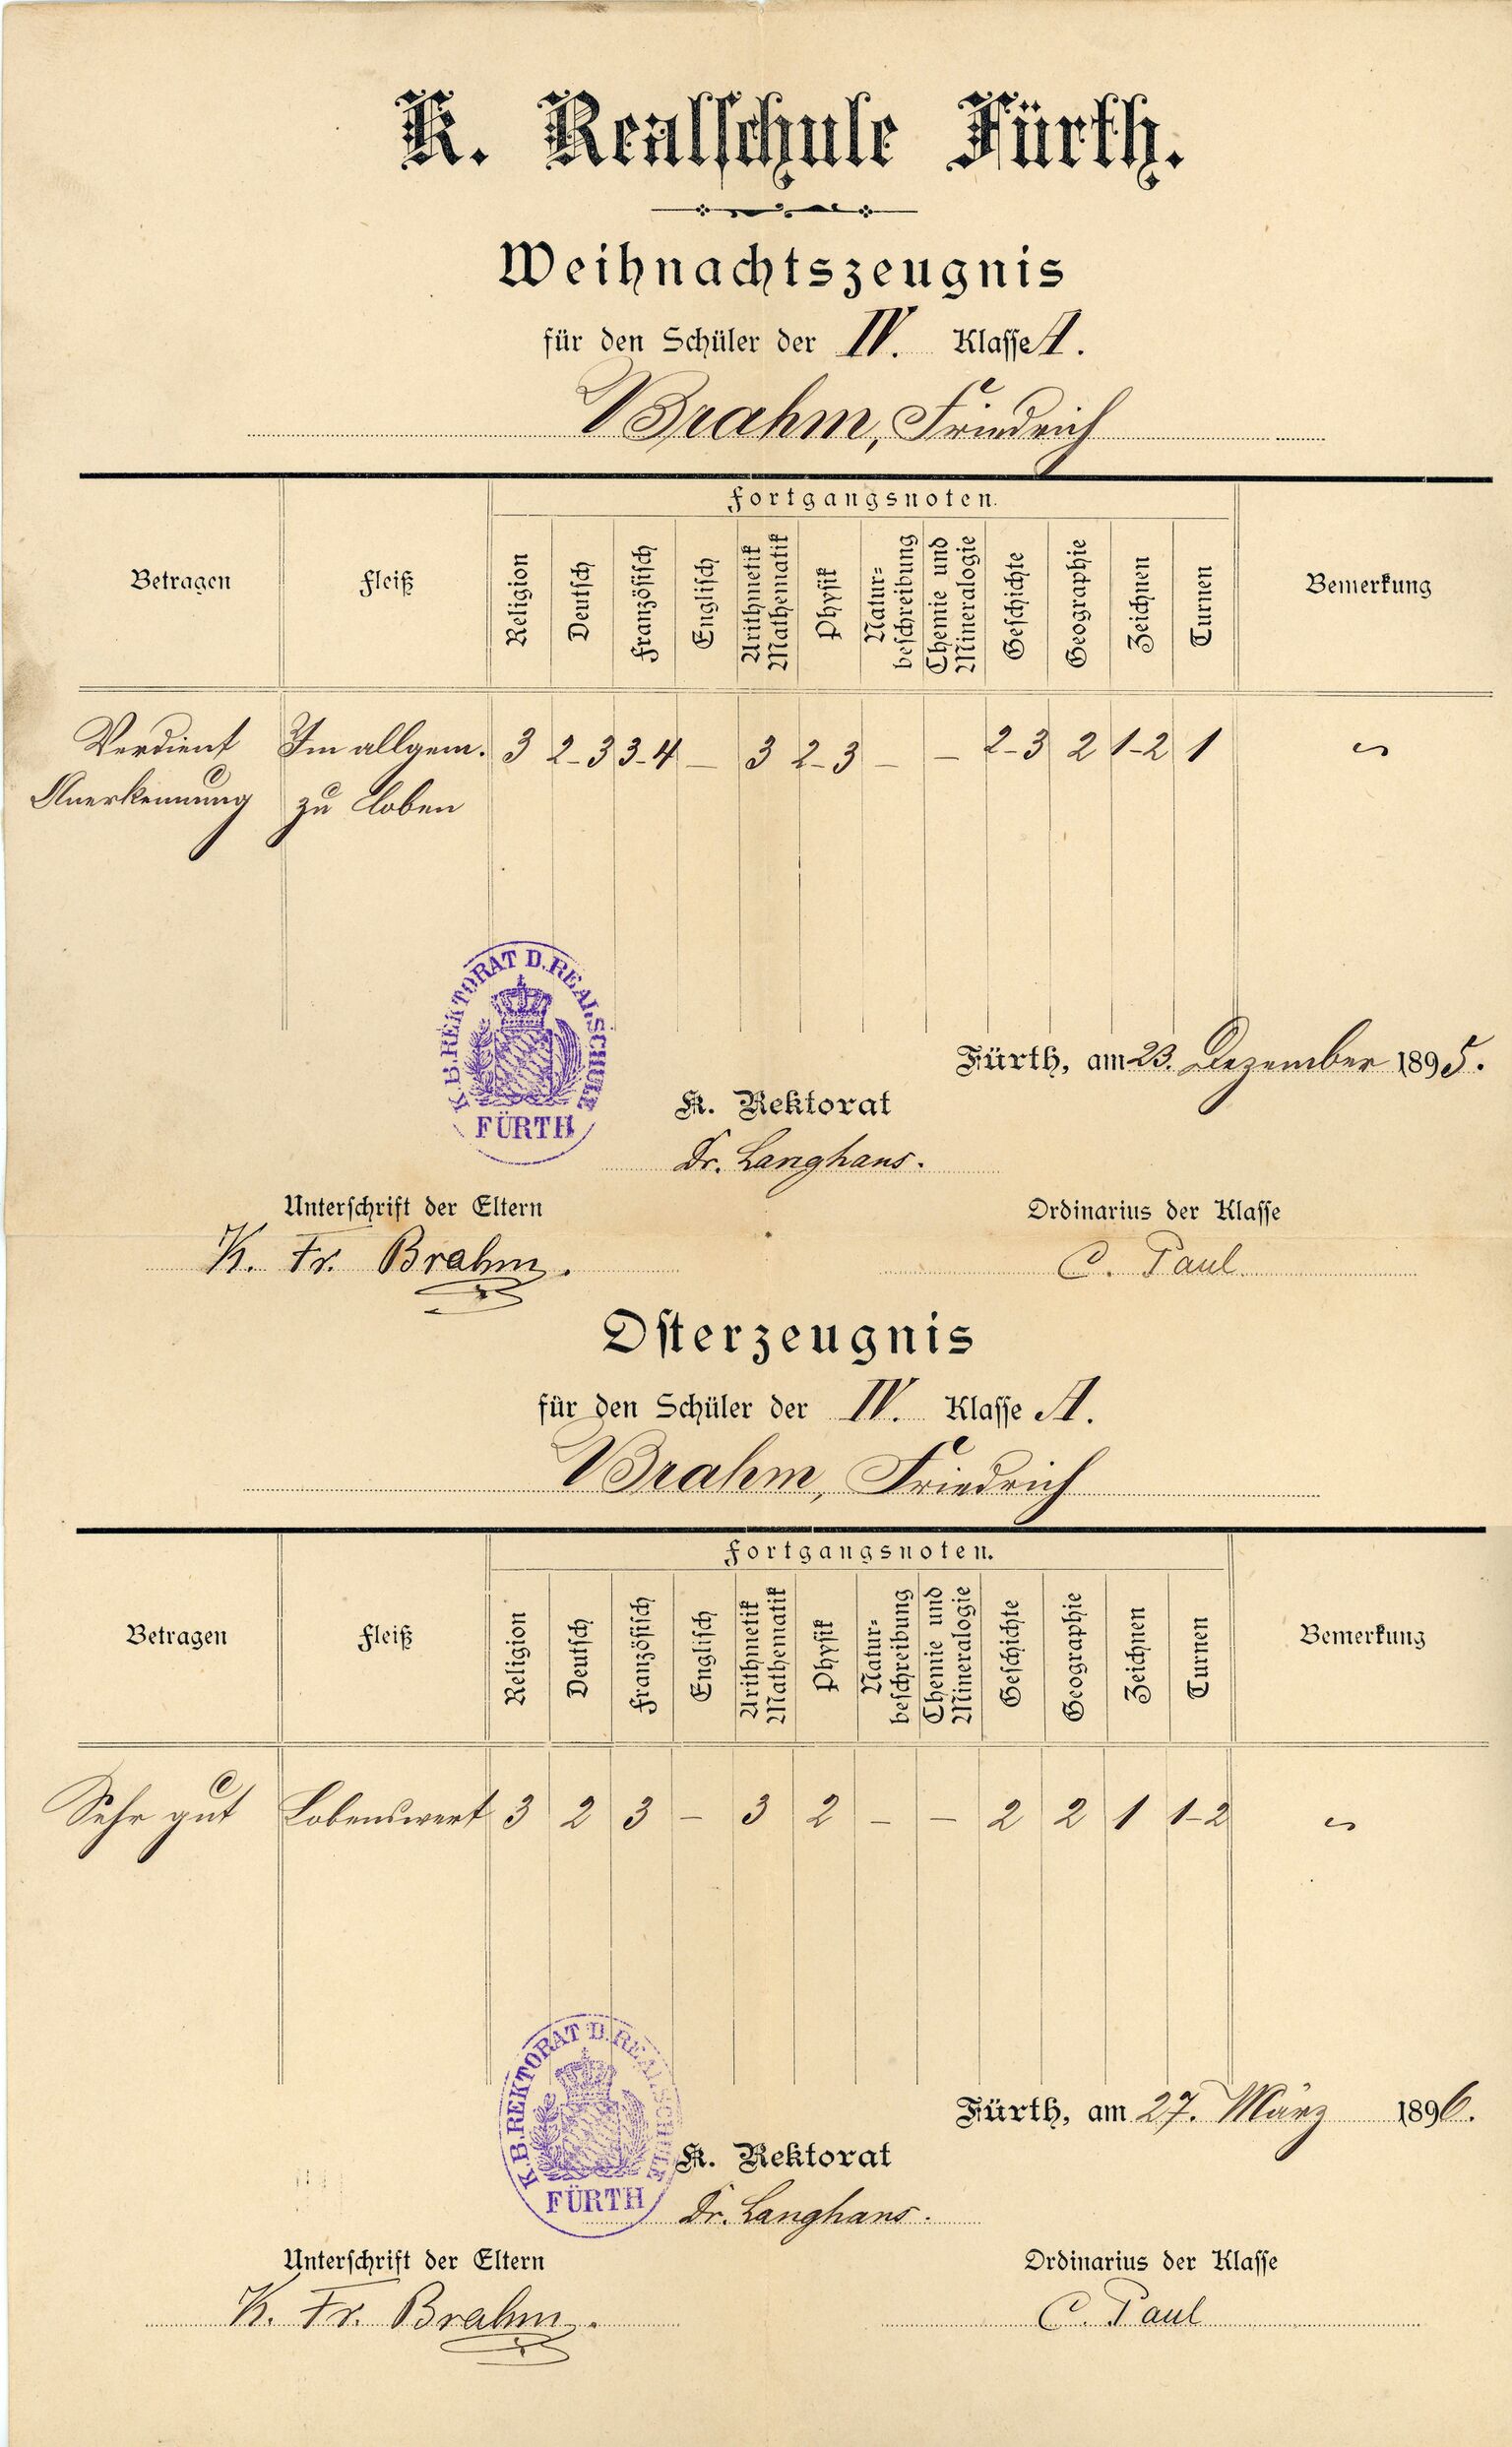 K. Realschule Fürth.
Weihnachtszeugnis
für den Schüler der IV. Klasse A.
Brahm, Friedrich
Fortgangsnoten.
Betragen Fleiß Religion Deutsch Französisch Englisch Arithmetik Mathematik Physik Natur-beschreibung Chemie und Mineralogie Geschichte Geographie Zeichnen Turnen Bemerkung
Verdient Im allgem. 3 2-3 3-4 – 3 2-3 – – 2-3 2 1-2 1
Anerkennung zu loben
K.B.REKTORAT D.REALSCHULE
FÜRTH
Fürth, am 23. Dezember 1895.
K. Rektorat
Dr. Langhans.
Unterschrift der Eltern Ordinarius der Klasse
K. Fr. Brahm. C. Paul
Osterzeugnis
für den Schüler der IV. Klasse A.
Brahm, Friedrich
Fortgangsnoten.
Betragen Fleiß Religion Deutsch Französisch Englisch Arithmetik Mathematik Physik Natur-beschreibung Chemie und Mineralogie Geschichte Geographie Zeichnen Turnen Bemerkung
Sehr gut Lobenswert 3 2 3 – 3 2 – – 2 2 1 1-2
K.B.REKTORAT D.REALSCHULE
FÜRTH
Fürth, am 27. März 1896.
K. Rektorat
Dr. Langhans.
Unterschrift der Eltern Ordinarius der Klasse
K. Fr. Brahm. C. Paul